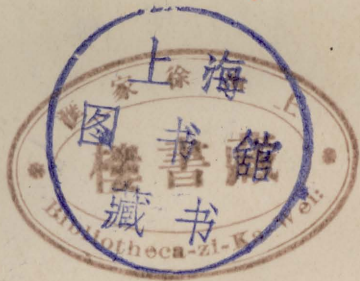 上海
图书馆
藏书
上海徐家匯
藏書樓
Bibliotheca-zi-Ka-Wei: